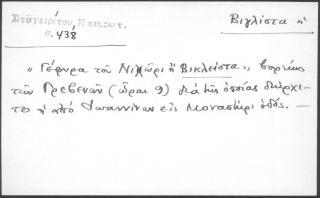 Στογειρίτου, Ηπειρωτ.
σ. 438
Βιγλίστα ἡ
"Γέφυρα τοῦ Νιμώρι ἢ Βικλείστα", βορείως
τῶν Γρεβενῶν (ὧραι 9) διὰ τῆς ὁποίας διήρχε-
το ἡ ἀπὸ Ἰωαννίνων εἰς Μοναστήρι ὁδός. —